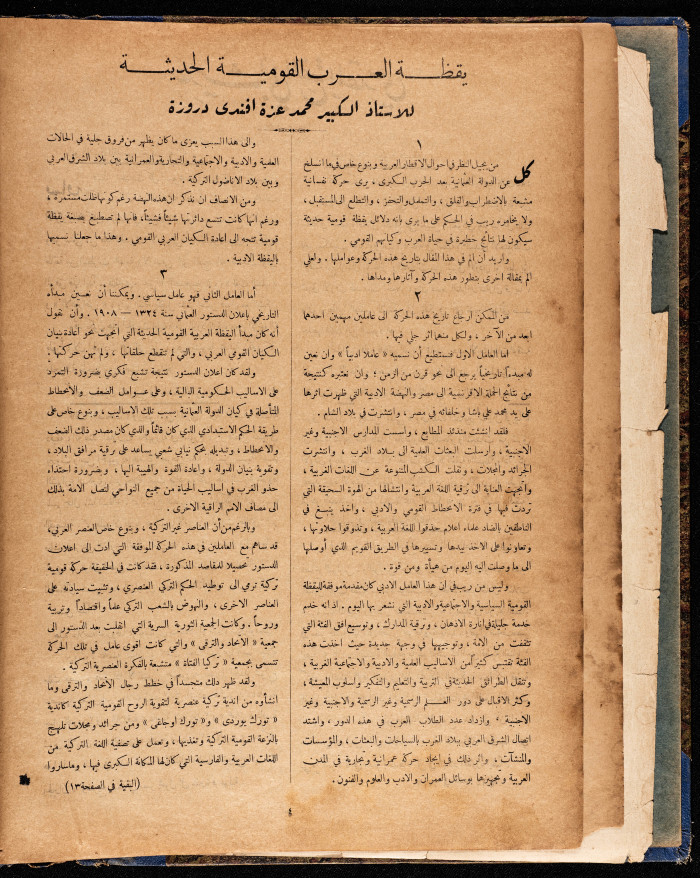 يقظـة العـرب القوميـة الحديثـة
للاستاذ الكبير محمد عزة افندى دروزة
١
كل من يجيل النظر في احوال الاقطار العربية وبنوع خاص في ما انسلخ
عن الدولة العثمانية بعد الحرب الكبرى ، يرى حركة نفسانية
مشبعة بالاضطراب والقلق ، والتململ والتحفز ، والتطلع الى المستقبل ،
ولا يخامره ريب في الحكم على ما يرى بانه دلائل يقظة قومية حديثة
سيكون لها نتائج خطيرة في حياة العرب وكيانهم القومي .
واريد أن ألم في هذا المقال بتاريخ هذه الحركة وعواملها . ولعلي
الم بمقالة اخرى بتطور هذه الحركة وآثارها ومداها .
٢
من الممكن ارجاع تاريخ هذه الحركة الى عاملين مهمين احدهما
ابعد من الآخر ، ولكل منهما اثر جلي فيها .
اما العامل الاول فنستطيع أن نسميه « عاملا ادبياً » وان نعين
له مبدءاً تاريخياً يرجع الى نحو قرن من الزمن ؛ وان نعتبره كنتيجة
من نتائج الحملة الافرنسية الى مصر والنهضة الادبية التي ظهرت اثرها
على يد محمد علي باشا وخلفائه في مصر ، وانتشرت في بلاد الشام .
فلقد انشئت منذئذ المطابع ، واسست المدارس الاجنبية وغير
الاجنبية ، وارسلت البعثات العلمية الى بلاد الغرب ، وانتشرت
الجرائد والمجلات ، ونقلت الكتب المتنوعة عن اللغات الغربية ،
واتجهت العناية الى ترقية اللغة العربية وانتشالها من الهوة السحيقة التي
تردت فيها في فترة الانحطاط القومي والادبي ، واخذ ينبغ في
الناطقين بالضاد علماء اعلام حذقوا اللغة العربية ، وتذوقوا حلاوتها ،
وتعاونوا على الاخذ بيدها وتسييرها في الطريق القويم الذي أوصلها
الى ما وصلت اليه اليوم من حياة ومن قوة .
وليس من ريب في ان هذا العامل الادبي كان مقدمة موفقة لليقظة
القومية السياسية والاجتماعية والادبية التي نشعر بها اليوم . اذ انه خدم
خدمة جليلة في إنارة الاذهان ، وترقية المدارك ، وتوسيع افق الفئة التي
تثقفت من الامة ، وتوجيهها في وجهة جديدة حيث اخذت هذه
الفئة تقتبس كثيراً من الاساليب العلمية والادبية والاجتماعية الغربية ،
وتنقل الطرائق الحديثة في التربية والتعليم والتفكير واسلوب المعيشة ،
وكثر الاقبال على دور العـــلم الرسمية وغير الرسمية والاجنبية وغير
الاجنبية . وازداد عدد الطلاب العرب في هذه الدور ، واشتد
اتصال الشرق العربي ببلاد الغرب بالسياحات والبعثات ، والمؤسسات
والمنشآت ، واثر ذلك في ايجاد حركة عمرانية وتجارية في المدن
العربية وتجهيزها بوسائل العمران والادب والعلوم والفنون .
والى هذا السبب يعزى ما كان يظهر من فروق جلية في الحالات
العقلية والادبية والاجتماعية والتجارية والعمرانية بين بلاد الشرق العربي
وبين بلاد الاناضول التركية .
ومن الانصاف ان نذكر ان هذه النهضة رغم كونها ظلت مستمرة ،
ورغم انها كانت تتسع دائرتها شيئاً فشيئاً ، فانها لم تصطبغ بصبغة يقظة
قومية تتجه الى اعادة الكيان العربي القومي . وهذا ما جعلنا نسميها
باليقظة الادبية .
٣
أما العامل الثاني فهو عامل سياسي . ويمكننا أن نعين مبدأه
التاريخي باعلان الدستور العثماني سنة ١٣٢٤ — ١٩٠٨ . وأن نقول
أنه كان مبدأ اليقظة العربية القومية الحديثة التي اتجهت نحو اعادة بنيان
الكيان القومي العربي ، والتي لم تنقطع حلقاتها ، ولم تهن حركتها .
ولقد كان اعلان الدستور نتيجة تشبع فكري بضرورة التمرد
على الاساليب الحكومية البالية ، وعلى عوامل الضعف والانحطاط
المتأصلة في كيان الدولة العثمانية بسبب تلك الاساليب ، وبنوع خاص على
طريقة الحكم الاستبدادي الذي كان قائماً والذي كان مصدر ذلك الضعف
والانحطاط ، وتبديله بحكم نيابي شعبي يساعد على ترقية مرافق البلاد ،
وتقوية بنيان الدولة ، واعادة القوة والهيبة اليها ، وبضرورة احتذاء
حذو الغرب في اساليب الحياة من جميع النواحي لتصل الامة بذلك
الى مصاف الامم الراقية الاخرى .
وبالرغم من أن العناصر غير التركية ، وبنوع خاص العنصر العربي ،
قد ساهم مع العاملين في هذه الحركة الموفقة التي أدت الى اعلان
الدستور تحصيلا للمقاصد المذكورة ، فقد كانت في الحقيقة حركة قومية
تركية ترمي الى توطيد الحكم التركي العنصري ، وتثبيت سيادته على
العناصر الاخرى ، والنهوض بالشعب التركي عقلاً واقتصاداً وتربية
وروحاً . وكانت الجمعية الثورية السرية التي انقلبت بعد الدستور الى
جمعية « الاتحاد والترقي » والتي كانت أقوى عامل في تلك الحركة
تتسمى بجمعية « تركيا الفتاة » متشبعة بالفكرة العنصرية التركية .
ولقد ظهر ذلك متجسداً في خطط رجال الاتحاد والترقي وما
انشأوه من اندية تركية عنصرية لتقوية الروح القومية التركية كاندية
« تورك يوردى » و « تورك اوجاغى » ومن جرائد ومجلات تلهج
بالنزعة القومية التركية وتغذيها ، وتعمل على تصفية اللغة التركية من
اللغات العربية والفارسية التي كان لها المكانة الكبرى فيها ، وما ساروا
(البقية في الصفحة ١٣)
٤